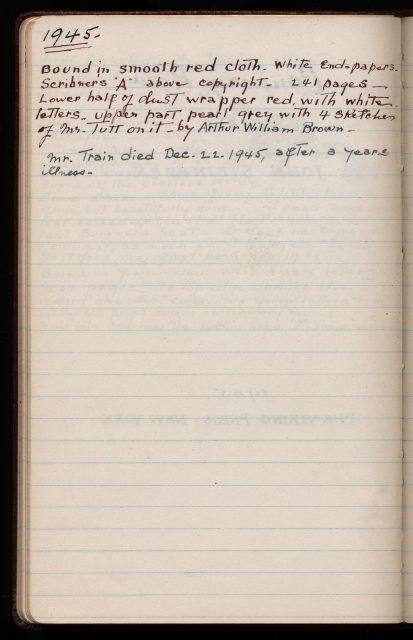 1945.
Bound in smooth red cloth. White End-papers.
Scribners "A" above copyright. 241 pages —
Lower half of dust wrapper red, with white
letters. upper part pearl grey with 4 sketches
of Mr. Tutt on it, by Arthur William Brown.
Mr. Train died Dec. 22. 1945, after a years
illness.